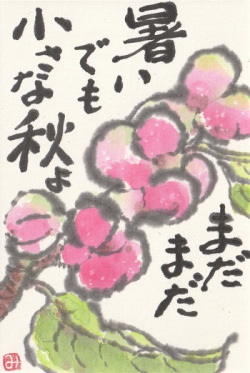 まだまだ
暑い
でも
小さな秋よ